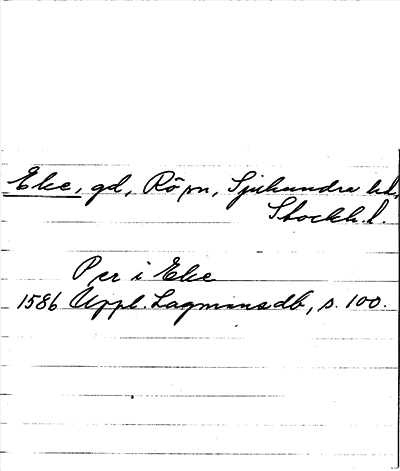 Eke, gd, Rö sn, Sjuhundra hd,
Stockh. l.
Per i Eke
1586 Uppl. Lagmansdb, s. 100.